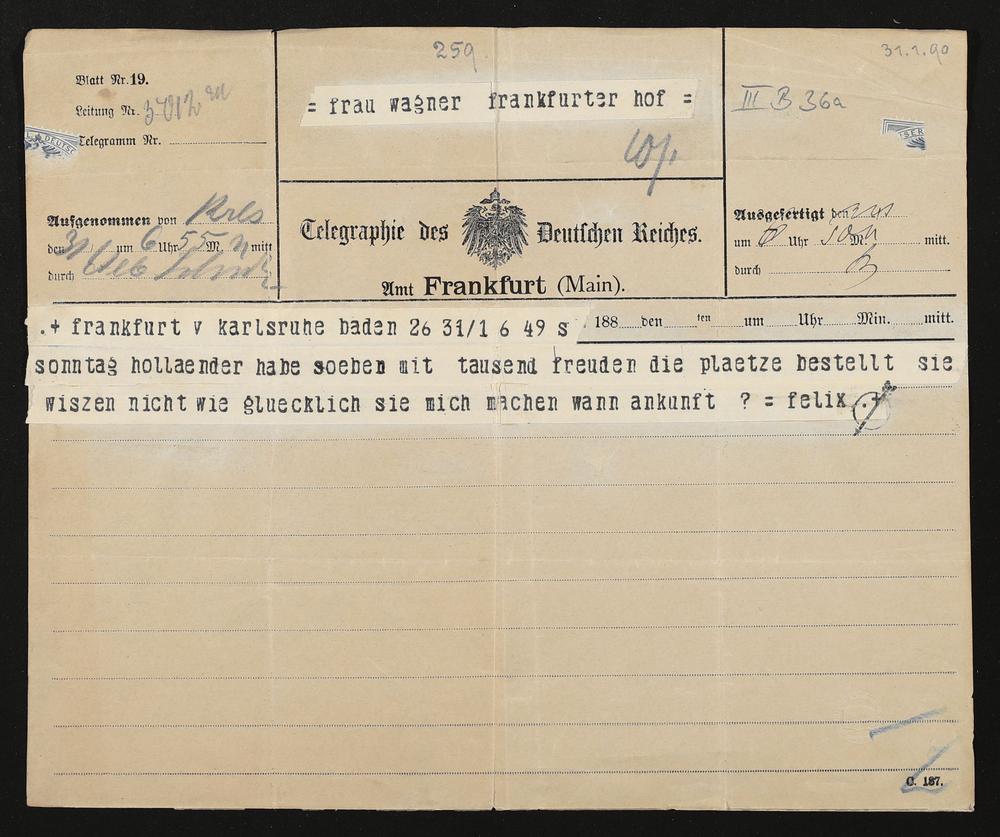 259
31.1.90
Blatt Nr. 19.
Leitung Nr. 3012
Telegramm Nr.
= frau wagner frankfurter hof =
III B 36a
Aufgenommen von Krls
den 31 um 6 Uhr 55 M. mitt
durch
Telegraphie des Deutschen Reiches.
Amt Frankfurt (Main).
Ausgefertigt den
um Uhr M. mitt.
durch
.+ frankfurt v karlsruhe baden 26 31/1 6 49 s
188 den ten um Uhr Min. mitt.
sonntag hollaender habe soeben mit tausend freuden die plaetze bestellt sie
wiszen nicht wie gluecklich sie mich machen wann ankunft ? = felix .+
C. 187.